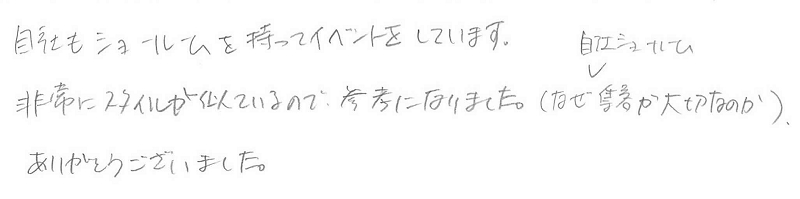 自社もショールームを持ってイベントをしています。
自社ショールーム
非常にスタイルが似ているので、参考になりました。(なぜ集客が大切なのか)、
ありがとうございました。